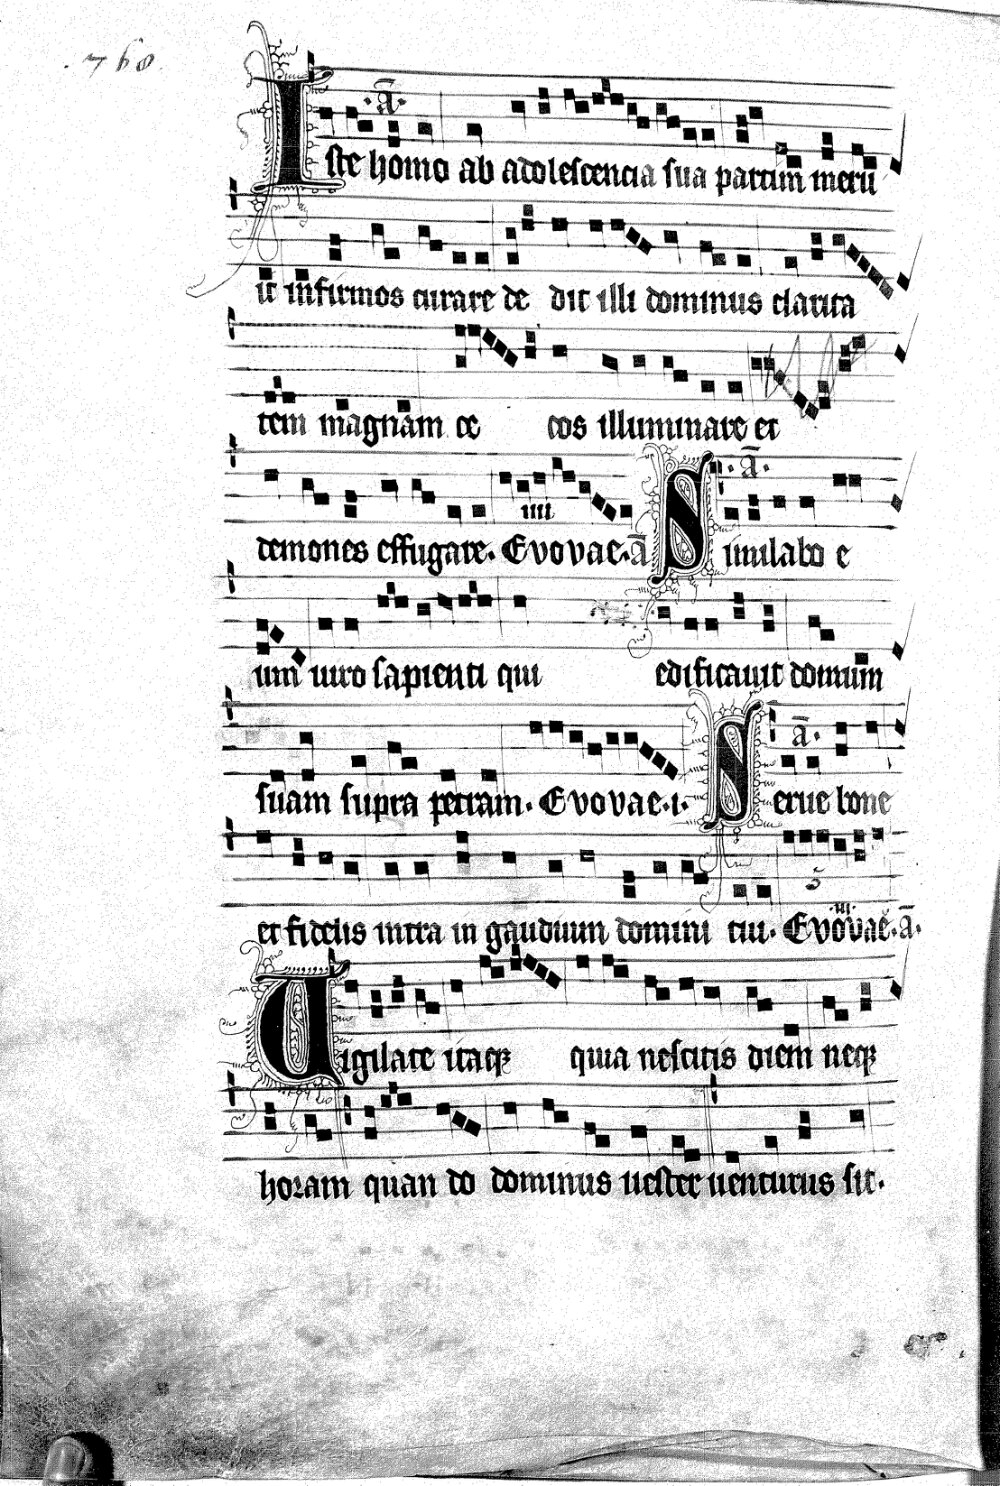 .760.
.a̅.
Iste homo ab adolescencia sua partim meru
it infirmos curare de dit illi dominus clarita
tem magnam ce cos illuminare et
.a̅.
demones effugare. Evovae. a̅ Similabo e
iiii
um uiro sapienti qui edificauit domum
a̅.
suam supra petram. Evovae. i. Serue bone
et fidelis intra in gaudium domini tui. Evovae. a̅.
.iii.
Vigilate itaqꝫ quia nescitis diem neqꝫ
horam quan do dominus uester uenturus sit.